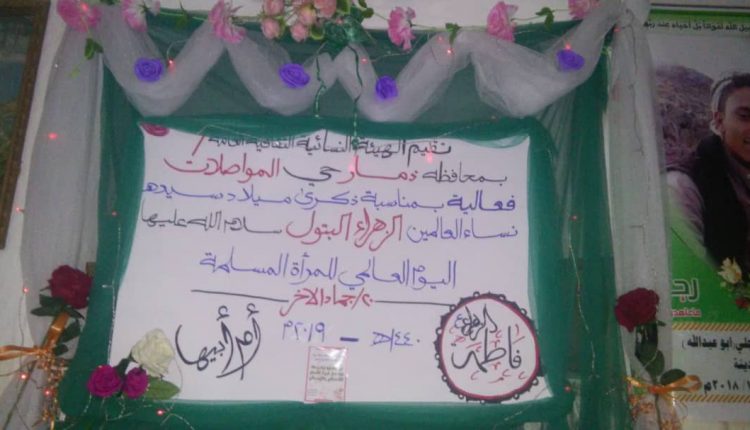 تقيم الهيئة النسائية الثقافية العامة /
بمحافظة ذمار حي المواصلات
فعالية بمناسبة ذكرى ميلاد سيدة
نساء العالمين الزهراء البتول سلام الله عليها
اليوم العالمي للمرأة المسلمة
٢٠/جماد الآخر
١٤٤٠هـ – ٢٠١٩م
أم أبيها
فاطمة الزهراء
أحياء عند
علي أبو عبدالله)
٢٠١٨م